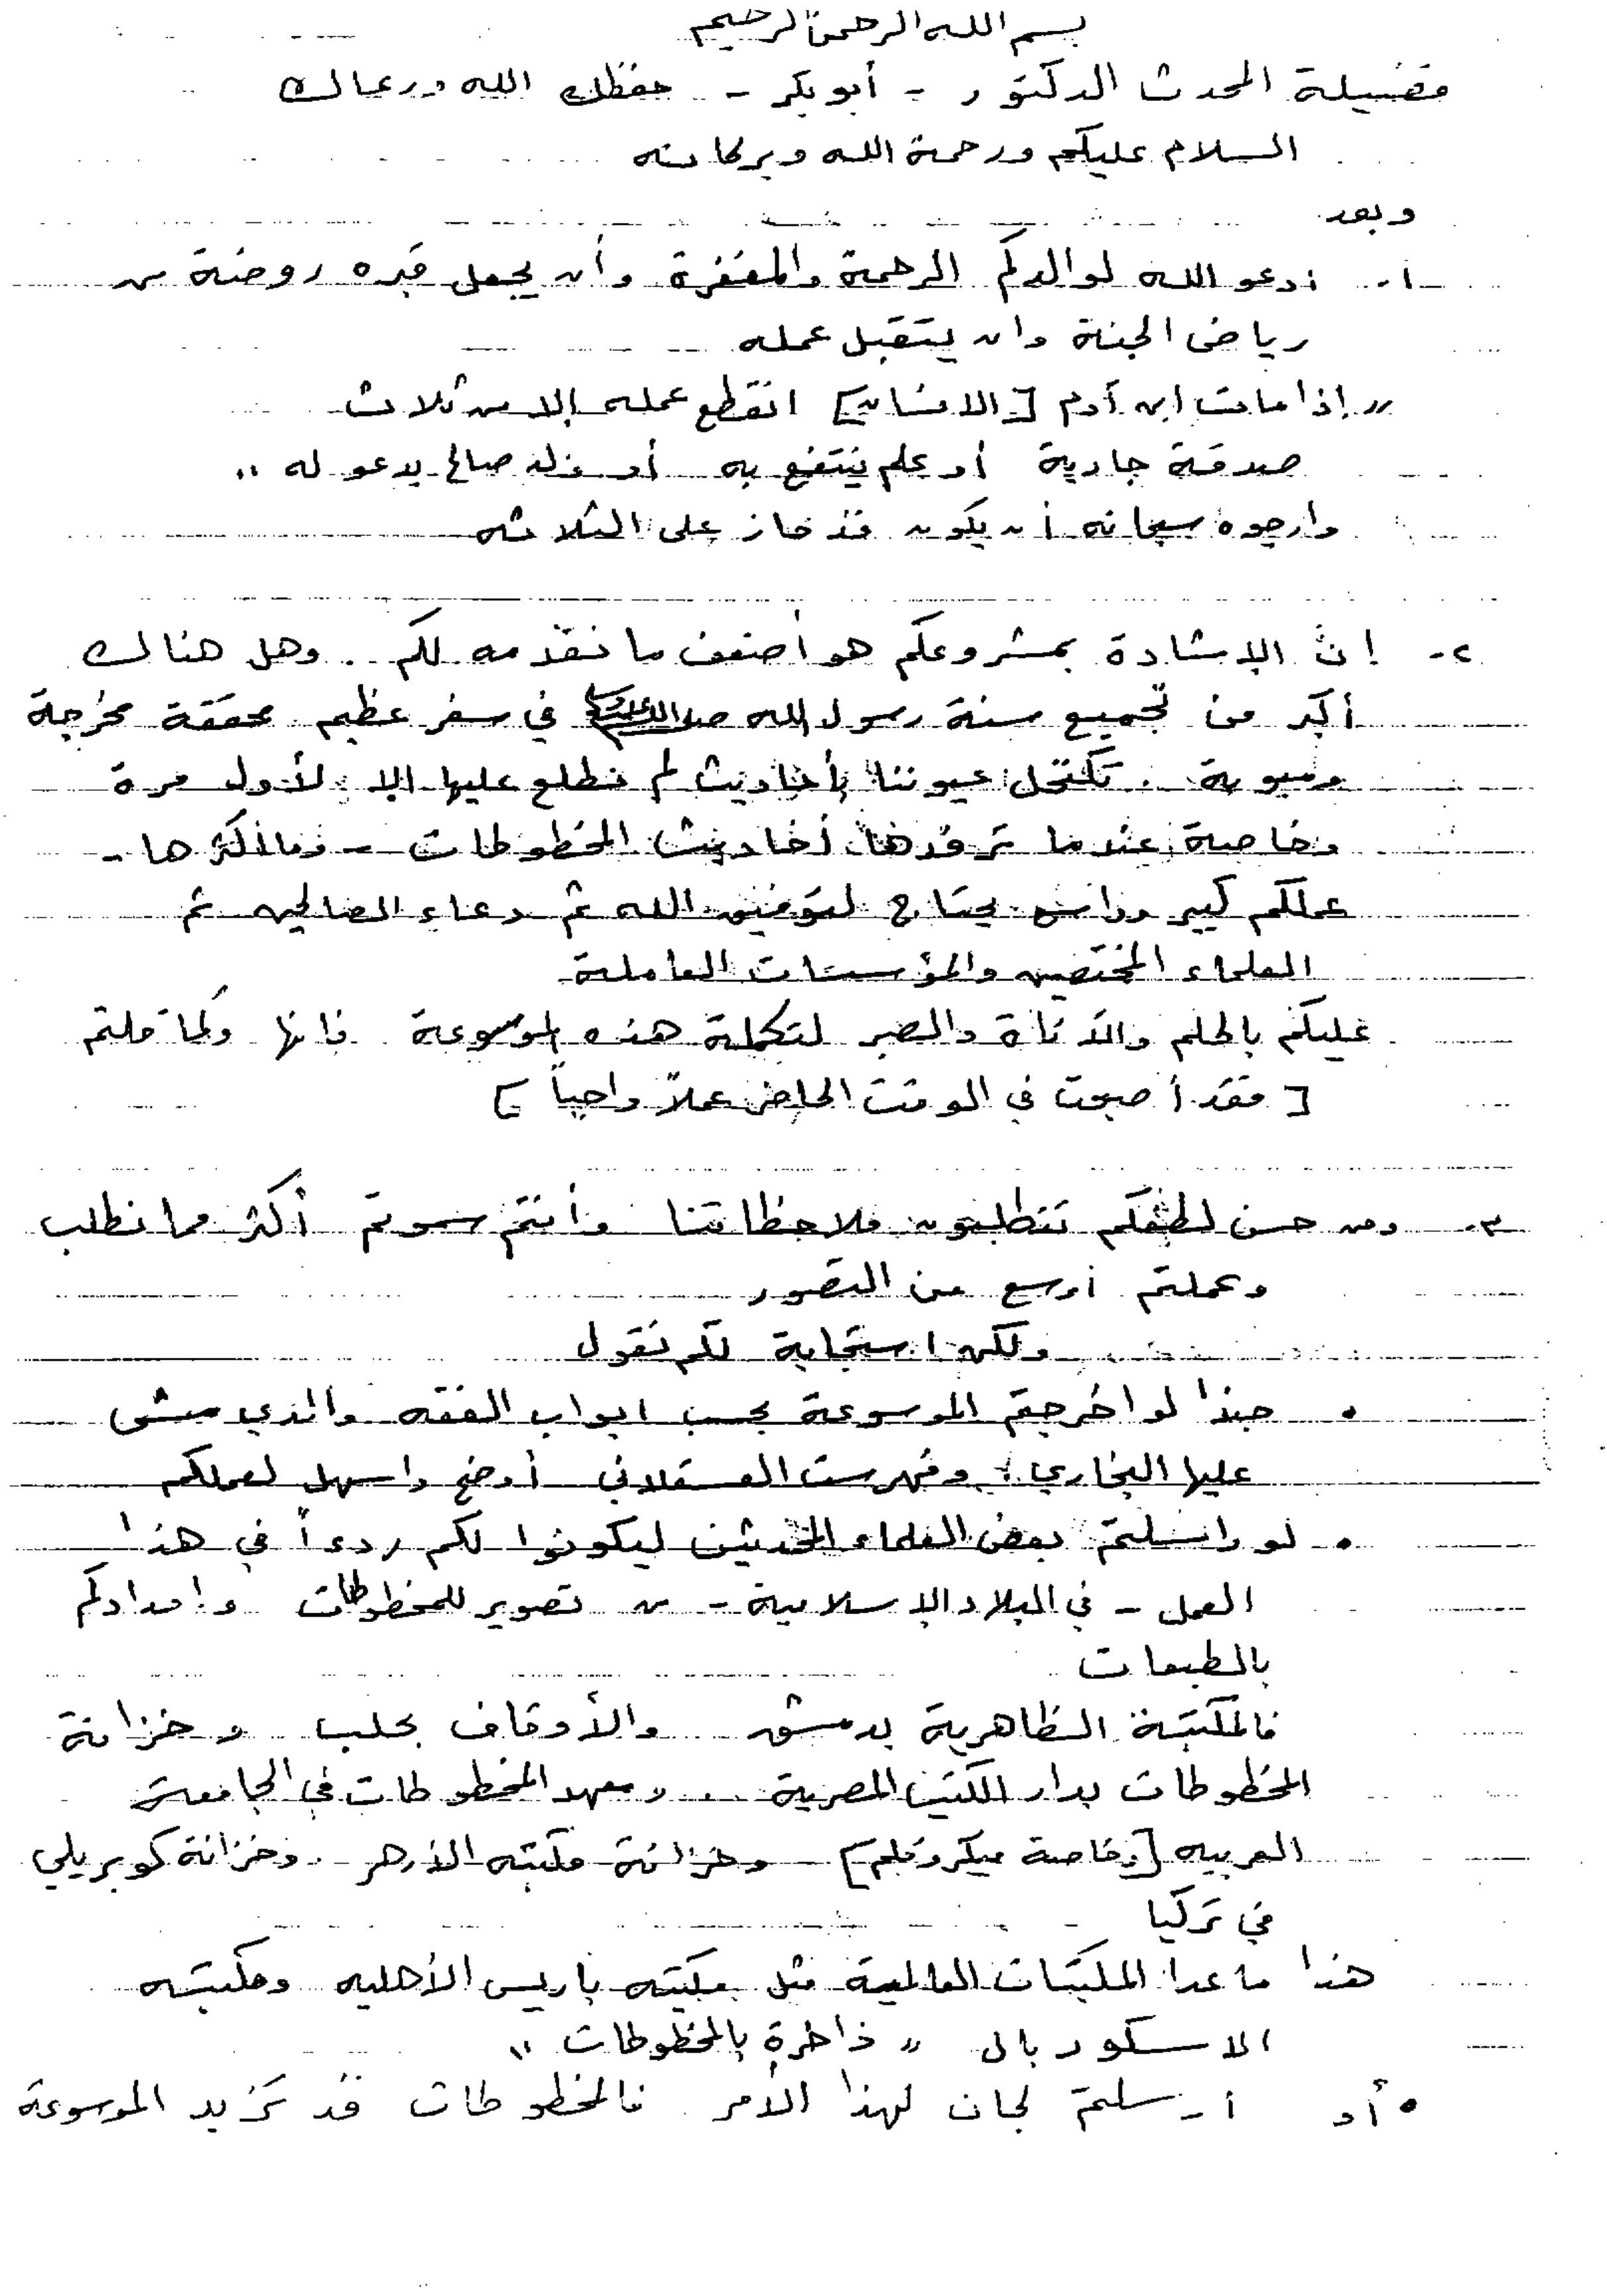 بسم الله الرحمن الرحيم
فضيلة المحدث الدكتور - أبو بكر - حفظك الله ورعاك
السلام عليكم ورحمة الله وبركاته
وبعد
١- ندعو الله لوالدكم الرحمة والمغفرة وأن يجعل قبره روضة من
رياض الجنة وان يتقبل عمله
"إذا مات ابن آدم [الانسان] انقطع عمله إلا من ثلاث
صدقة جارية أو علم ينتفع به أو ولد صالح يدعو له"
وارجوه سبحانه أن يكون قد حاز على الثلاثه
٢- إنّ الإشادة بمشروعكم هو أضعف ما نقدمه لكم .. وهل هناك
أكبر من تجميع سنة رسول الله صلى الله عليه وسلم في سفر عظيم محققة مخرجة
ومبوبة . تكتحل عيوننا بأحاديث لم نطلع عليها إلا لأول مرة
وخاصة عندما ترفدها أحاديث المخطوطات - وما أكثرها -
عملكم كبير ورائس يحتاج لتوفيق الله ثم دعاء الصالحين ثم
العلماء المختصين والمؤسسات العاملة
عليكم بالحلم والأناة والصبر لتكملة هذه الموسوعة فانها وكما قلتم
[فقد أصبحت في الوقت الحاضر عملاً واجباً]
٣- ومن حسن لطفكم تتطلبون ملاحظاتنا وأنتم سموتم أكثر مما نطلب
وعملتم أوسع من التصور
ولكن استجابة لكم نقول
• حبذا لو اخرجتم الموسوعة بحسب ابواب الفقه والذي مشى
عليها البخاري : وفهرست العسقلاني أوضح واسهل لعملكم
• لو راسلتم بعض العلماء المحدثين ليكونوا لكم ردءاً في هذا
العمل - في البلاد الإسلامية - من تصوير للمخطوطات وإمدادكم
بالطبعات
فالمكتبة الظاهرية بدمشق والأوقاف بحلب وخزانة
المخطوطات بدار الكتب المصرية .. ومعهد المخطوطات في الجامعة
العربيه [وخاصة ميكروفلم] وخزانة مكتبه الأزهر . وخزانة كوبريلي
في تركيا
هذا ما عدا المكتبات العالمية مثل مكتبه باريس الأهليه ومكتبه
الاسكوربال "ذاخرة بالمخطوطات"
• أو أرسلتم لجان لهذا الأمر فالمخطوطات قد تزيد الموسوعة